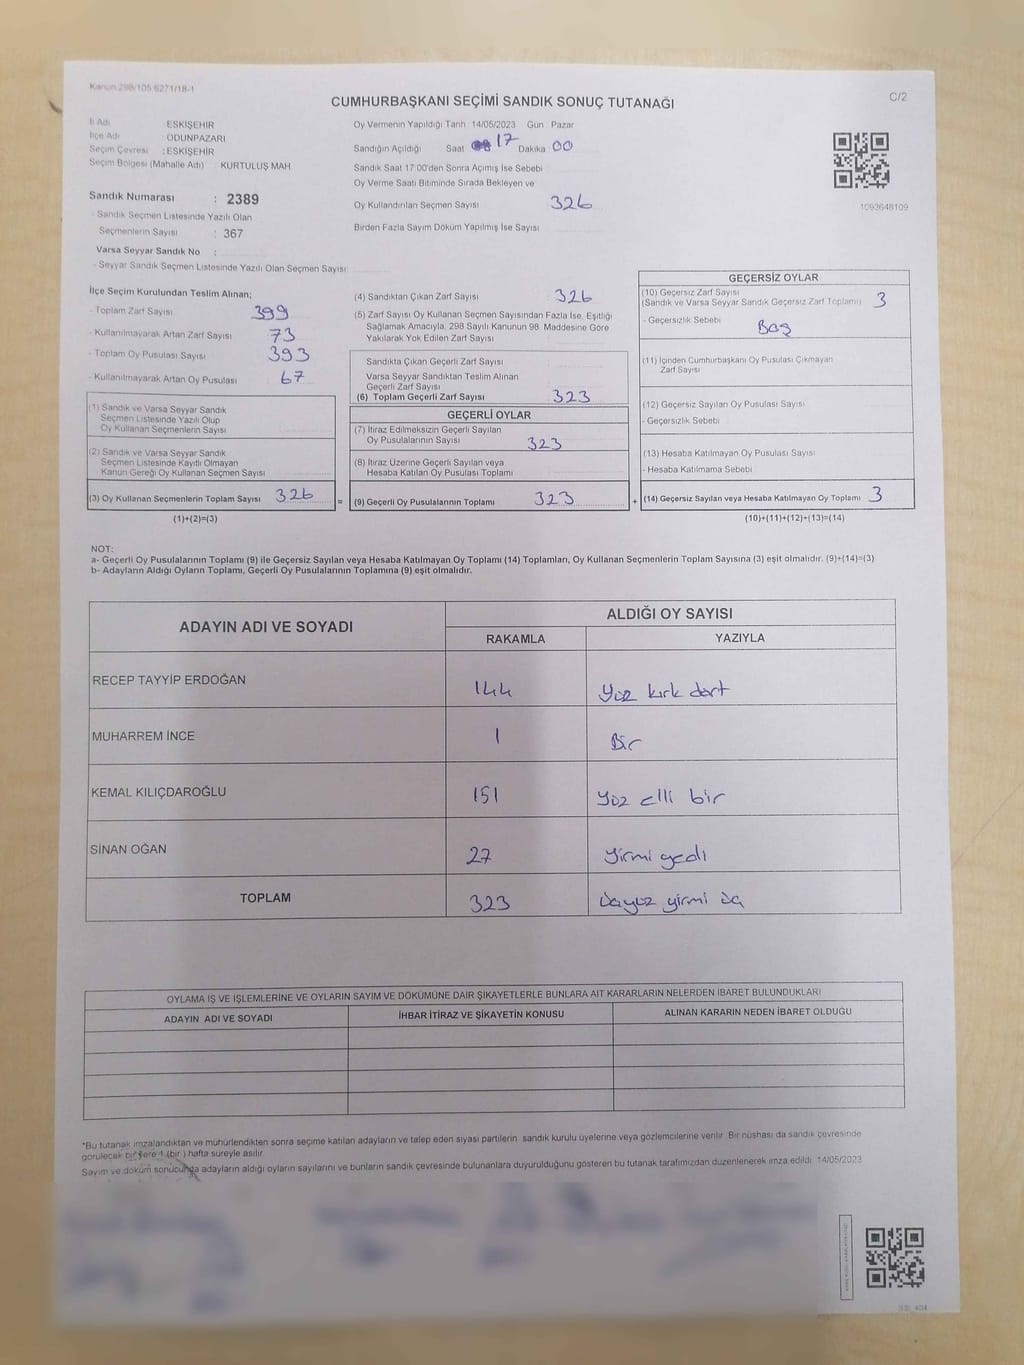 Kanun 298/105 6271/18-1
C/2
CUMHURBAŞKANI SEÇİMİ SANDIK SONUÇ TUTANAĞI
İl Adı ESKİŞEHİR
İlçe Adı ODUNPAZARI
Seçim Çevresi :ESKİŞEHİR
Seçim Bölgesi (Mahalle Adı) KURTULUŞ MAH
Sandık Numarası : 2389
- Sandık Seçmen Listesinde Yazılı Olan
Seçmenlerin Sayısı : 367
Varsa Seyyar Sandık No :
- Seyyar Sandık Seçmen Listesinde Yazılı Olan Seçmen Sayısı
Oy Vermenin Yapıldığı Tarih 14/05/2023 Gün Pazar
Sandığın Açıldığı Saat 17 Dakika 00
Sandık Saat 17 00'den Sonra Açımış İse Sebebi
Oy Verme Saati Bitiminde Sırada Bekleyen ve
Oy Kullandırılan Seçmen Sayısı 326
Birden Fazla Sayım Döküm Yapılmış İse Sayısı
1093648109
İlçe Seçim Kurulundan Teslim Alınan;
- Toplam Zarf Sayısı 399
- Kullanılmayarak Artan Zarf Sayısı 73
- Toplam Oy Pusulası Sayısı 393
- Kullanılmayarak Artan Oy Pusulası 67
(1) Sandık ve Varsa Seyyar Sandık
Seçmen Listesinde Yazılı Olup
Oy Kullanan Seçmenlerin Sayısı
(2) Sandık ve Varsa Seyyar Sandık
Seçmen Listesinde Kayıtlı Olmayan
Kanun Gereği Oy Kullanan Seçmen Sayısı
(3) Oy Kullanan Seçmenlerin Toplam Sayısı 326
(1)+(2)=(3)
=
(4) Sandıktan Çıkan Zarf Sayısı 326
(5) Zarf Sayısı Oy Kullanan Seçmen Sayısından Fazla İse, Eşitliği
Sağlamak Amacıyla, 298 Sayılı Kanunun 98. Maddesine Göre
Yakılarak Yok Edilen Zarf Sayısı
Sandıkta Çıkan Geçerli Zarf Sayısı
Varsa Seyyar Sandıktan Teslim Alınan
Geçerli Zarf Sayısı
(6) Toplam Geçerli Zarf Sayısı 323
GEÇERLİ OYLAR
(7) İtiraz Edilmeksizin Geçerli Sayılan
Oy Pusulalarının Sayısı 323
(8) İtiraz Üzerine Geçerli Sayılan veya
Hesaba Katılan Oy Pusulası Toplamı
(9) Geçerli Oy Pusulalarının Toplamı 323
+
GEÇERSİZ OYLAR
(10) Geçersiz Zarf Sayısı
(Sandık ve Varsa Seyyar Sandık Geçersiz Zarf Toplamı) 3
- Geçersizlik Sebebi Boş
(11) İçinden Cumhurbaşkanı Oy Pusulası Çıkmayan
Zarf Sayısı
(12) Geçersiz Sayılan Oy Pusulası Sayısı
- Geçersizlik Sebebi
(13) Hesaba Katılmayan Oy Pusulası Sayısı
- Hesaba Katılmama Sebebi
(14) Geçersiz Sayılan veya Hesaba Katılmayan Oy Toplamı 3
(10)+(11)+(12)+(13)=(14)
NOT:
a- Geçerli Oy Pusulalarının Toplamı (9) ile Geçersiz Sayılan veya Hesaba Katılmayan Oy Toplamı (14) Toplamları, Oy Kullanan Seçmenlerin Toplam Sayısına (3) eşit olmalıdır. (9)+(14)=(3)
b- Adayların Aldığı Oyların Toplamı, Geçerli Oy Pusulalarının Toplamına (9) eşit olmalıdır.
ADAYIN ADI VE SOYADI
ALDIĞI OY SAYISI
RAKAMLA YAZIYLA
RECEP TAYYİP ERDOĞAN 144 Yüz kırk dört
MUHARREM İNCE 1 Bir
KEMAL KILIÇDAROĞLU 151 Yüz elli bir
SİNAN OĞAN 27 Yirmi yedi
TOPLAM 323 üçyüz yirmi üç
OYLAMA İŞ VE İŞLEMLERİNE VE OYLARIN SAYIM VE DÖKÜMÜNE DAİR ŞİKAYETLERLE BUNLARA AİT KARARLARIN NELERDEN İBARET BULUNDUKLARI
ADAYIN ADI VE SOYADI İHBAR İTİRAZ VE ŞİKAYETİN KONUSU ALINAN KARARIN NEDEN İBARET OLDUĞU
*Bu tutanak imzalandıktan ve mühürlendikten sonra seçime katılan adayların ve talep eden siyasi partilerin sandık kurulu üyelerine veya gözlemcilerine verilir. Bir nüshası da sandık çevresinde
görülecek bir yere 1 (bir ) hafta süreyle asılır.
Sayım ve döküm sonucunda adayların aldığı oyların sayılarını ve bunların sandık çevresinde bulunanlara duyurulduğunu gösteren bu tutanak tarafımızdan düzenlenerek imza edildi. 14/05/2023